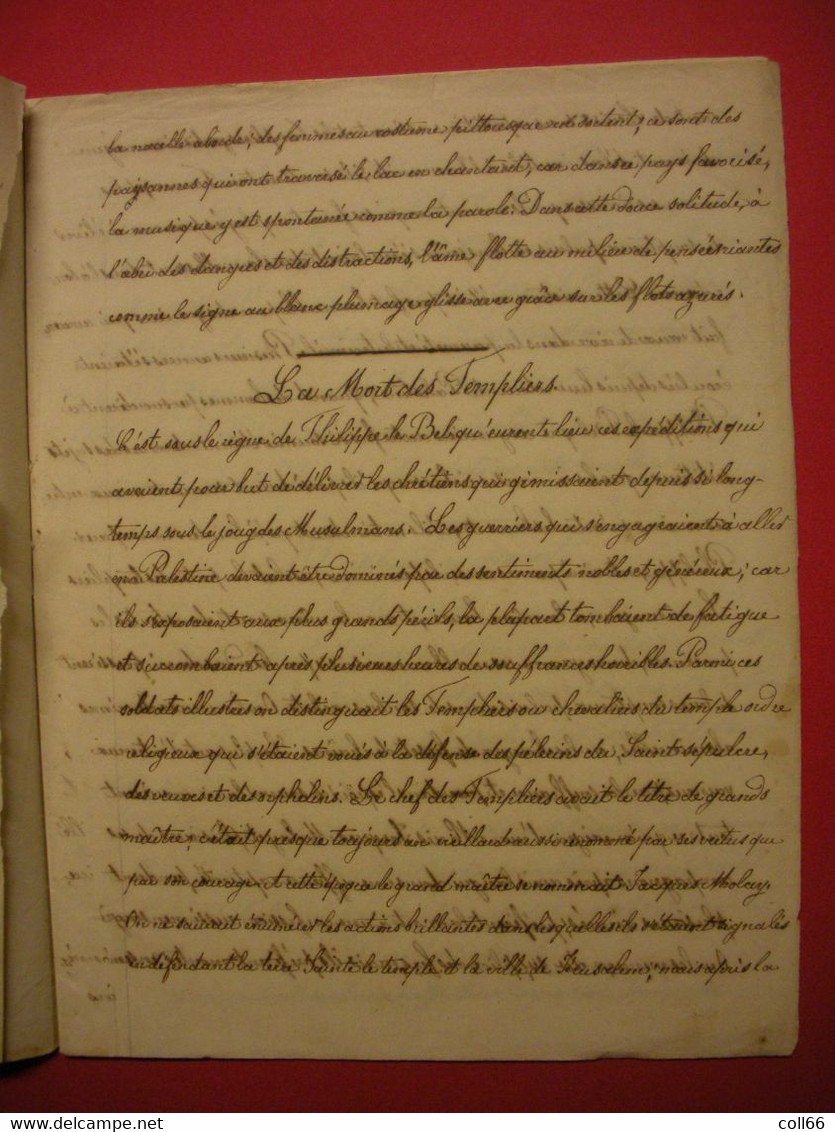 la nacelle aborde; des femmes au costume pittoresque en sortent; ce sont des
paysannes qui ont traversé le lac en chantant, car dans ce pays favorisé,
la musique y est spontanée comme la parole. Dans cette douce solitude, à
l'abri des dangers et des distractions, l'âme flotte au milieu de pensées riantes
comme le signe au blanc plumage glisse avec grâce sur les flots azurés.
La Mort des Templiers.
C'est sous le règne de Philippe le Bel qu'eurent lieu ces expéditions qui
avaient pour but de délivrer les chrétiens qui gémissaient depuis si long-
temps sous le joug des Musulmans. Les guerriers qui s'engageaient à aller
en Palestine devaient être dominés par des sentiments nobles et généreux; car
ils s'exposaient aux plus grands périls, la plupart tombaient de fatigue
et succombaient après plusieurs heures de souffrances horribles. Parmi ces
soldats illustres on distinguait les Templiers ou chevaliers du temple ordre
religieux qui s'étaient voués à la défense des pélerins du Saint-sépulcre,
des veuves et des orphelins. Le chef des Templiers avait le titre de grands
maître; c'était presque toujours un vieillard aussi renommé par ses vertus que
par son courage. A cette époque le grand maître se nommait Jacques Molay.
On ne saurait énumérer les actions brillantes dans lesquelles ils s'étaient signalés
en défendant la terre Sainte le temple et la ville de Jérusalem; mais après la
delcampe.net
coll66